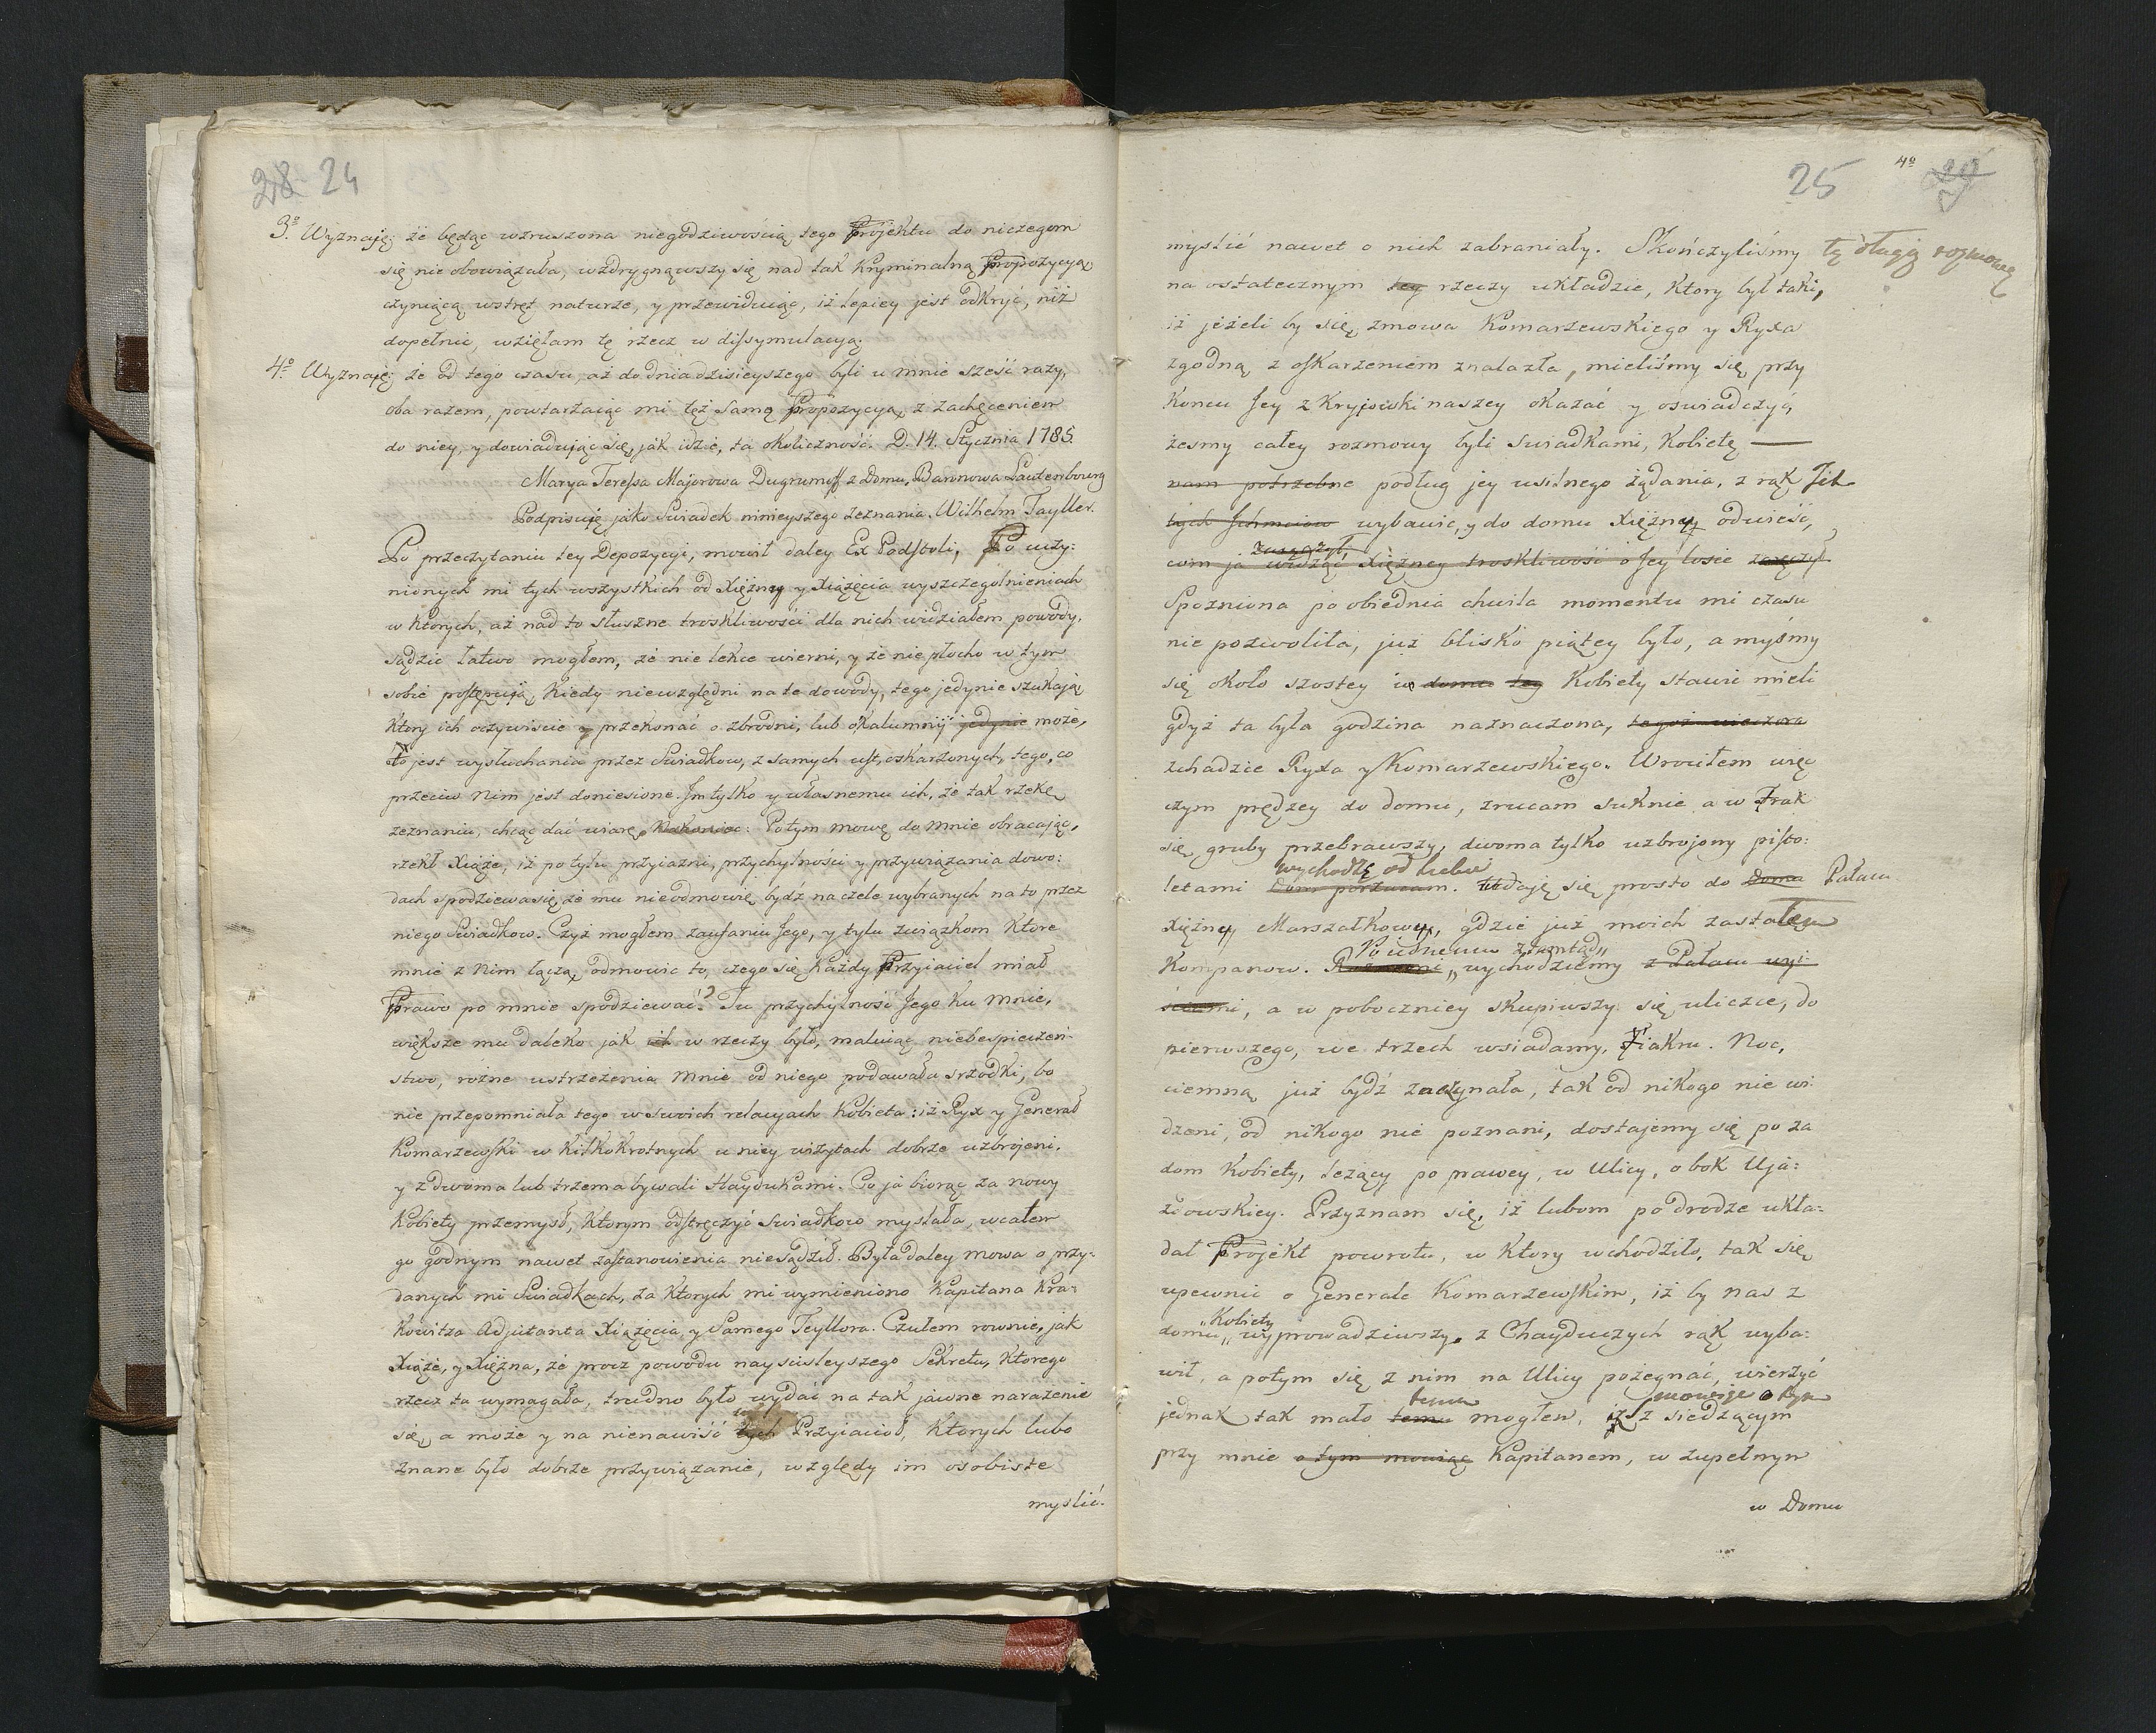 28 24
3º. Wyznaję; że będąc wzruszona niegodziwością tego Projektu do niczegom
się nie obowiązała, wzdrygnąwszy się nad tak Kryminalną Propozycyą
czyniącą wstręt naturze, y przewiduiąc, iż lepiey jest odkryć, niż
dopełnić, wzięłam tę rzecz w dissymulacyą.
4º. Wyznaję; że od tego czasu, aż do dnia dzisieyszego byli u mnie sześć razy,
oba razem, powtarzaiąc mi tęż samę Propozycyą, z zachęceniem
do niey, y dowiaduiąc się, jak idzie, ta okoliczność. D. 14. Stycznia 1785.
Marya Teressa Majorowa Dugrumoff z Domu, Baronowa Lautenbourg
Podpisuię jako Swiadek ninieyszego zeznania. Wilhelm Tayller.
Po przeczytaniu tey Depozycyi, mowił daley Ex Podstoli, Po uczy:
nionych mi tych wszystkich od Xiężny y Xiążęcia wyszczegolnieniach
w ktorych, aż nad to słuszne troskliwości dla nich widziałem powody,
sądzic łatwo mogłem, że nie lekce wierni, y że nie płocho w tym
sobie postępuią, Kiedy niewzględni na te dowody, tego jedynie szukaią
ktory ich oczywiscie y przekonać o zbrodni, lub okalumnij jedynie może,
to jest wysłuchania przez Swiadkow, z samych ust, oskarzonych, tego, co
przeciw Nim jest doniesione. Im tylko y własnemu ich, że tak rzekę
zeznaniu, chcąc dać wiarę. Nakoniec: Potym mowę do mnie obracając,
rzekł Xiąże, iż po tylu przyiazni, przychylności y przywiązania dowo:
dach spodziewa się, że mu nieodmowię bydź na czele wybranych na to przez
niego Swiadkow. Czyż mogłem zaufaniu Jego, y tylu związkom Ktore
mnie z Nim łączą, odmowic to, czego się każdy Przyiaciel miał
Prawo po mnie spodziewać? Tu przychylność Jego ku mnie,
większe mu daleko jak ich w rzeczy było, maluiąc niebespieczeń-
stwo, rożne ustrzeżenia mnie od niego podawała srzodki, bo
nie przepomniała tego w swoich relacyach Kobieta: iż Ryx y Generał
Komarzewski w kilkokrotnych u niey wizytach dobrze uzbrojeni,
y z dwoma lub trzema bywali Haydukami. Co ja biorąc za nowy
Kobiety przemysł, ktorym odstręczyć swiadkow myslała, wcałem
go godnym nawet zastanowienia niesądził. Była daley mowa o przy:
danych mi Swiadkach, za ktorych mi wymieniono Kapitana Kra-
kowitza Adjutanta Xiążęcia, y Samego Teyllora. Czułem rownie, jak
Xiąże, y Xiężna, że procz powodu nayscisleyszego Sekretu, Ktorego
rzecz ta wymagała, trudno było wydać na tak jawne narażenie
się, a może y na nienawiść tych Przyiacioł, Ktorych lubo
znane było dobrze przywiązanie, względy im osobiste
myslić.
25 4º 29
myslić nawet o nich zabraniały. Skończyliśmy tę długą rozmowę
na ostatecznym tey rzeczy układzie, Ktory był taki,
iż jeżeli by się zmowa Komarzewskiego y Ryxa
zgodną z oskarzeniem znalazła, mieliśmy się przy
Koncu Jey z Kryjowki naszey okazać y oswiadczyć,
żesmy całey rozmowy byli swiadkami, Kobietę —
nam potrzebne podług jey usilnego żądania, z rąk Jch
tych Jchmciow wybawic, y do domu Xiężny odwieść,
zaręczył,
com ja widząć Xiężney troskliwość o Jey losie zaręczył
Spozniona po obiednia chwila momentu mi czasu
nie pozwoliła, już blisko piątey było, a myśmy
się około szostey w domu tey Kobiety stawić mieli
gdyż ta była godzina naznaczona, tegoż wieczora
zchadzie Ryxa y Komarzewskiego. Wrociłem więc
czym prędzey do domu, zrucam suknie a w Frak
się gruby przebrawszy, dwoma tylko uzbrojony pisto:
wychodzę od siebie
letami Dom porzucam. Udaję się prosto do Domu Pałacu
Xiężny Marszałkowy, gdzie już moich zastałem
Po iednemu ztamtąd
Kompanow. wychodziemy z Pałacu wyi:
sciami, a w poboczniey skupiwszy się uliczce, do
pierwszego, we trzech wsiadamy, Fiakru. Noc,
ciemną już bydź zaczynała, tak od nikogo nie wi-
dzeni, od nikogo nie poznani, dostajemy się po za
dom Kobiety, leżący po prawey, w Ulicy, obok Uja:
zdowskiey. Przyznam się, iż lubom po drodze ukła:
dał Projekt powrotu, w ktory wchodziło, tak się
upewnić o Generale Komarzewskim, iż by nas z
Kobiety
domu wyprowadziwszy, z Chayduczych rąk wyba:
wił, a potym się z nim na Ulicy pożegnać, wierzyć
temu mowiąc o tym
jednak tak mało temu mogłem, iż z siedzącym
przy mnie o tym mowiąc Kapitanem, w zupełnym
w Domu